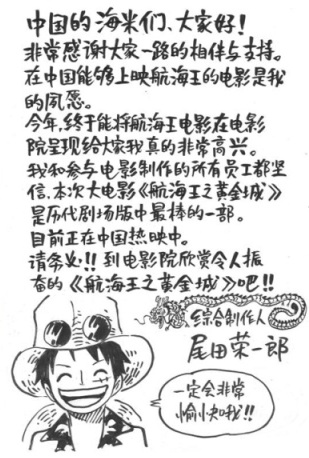 中国的海米们、大家好！
非常感谢大家一路的相伴与支持。
在中国能够上映航海王的电影是我
的夙愿。
今年,终于能将航海王电影在电影
院呈现给大家我真的非常高兴。
我和参与电影制作的所有员工都坚
信,本次大电影《航海王之黄金城》
是历代剧场版中最棒的一部。
目前正在中国热映中。
请务必!! 到电影院欣赏令人振
奋的《航海王之黄金城》吧!!
综合制作人
尾田荣一郎
一定会非常
愉快哦!!